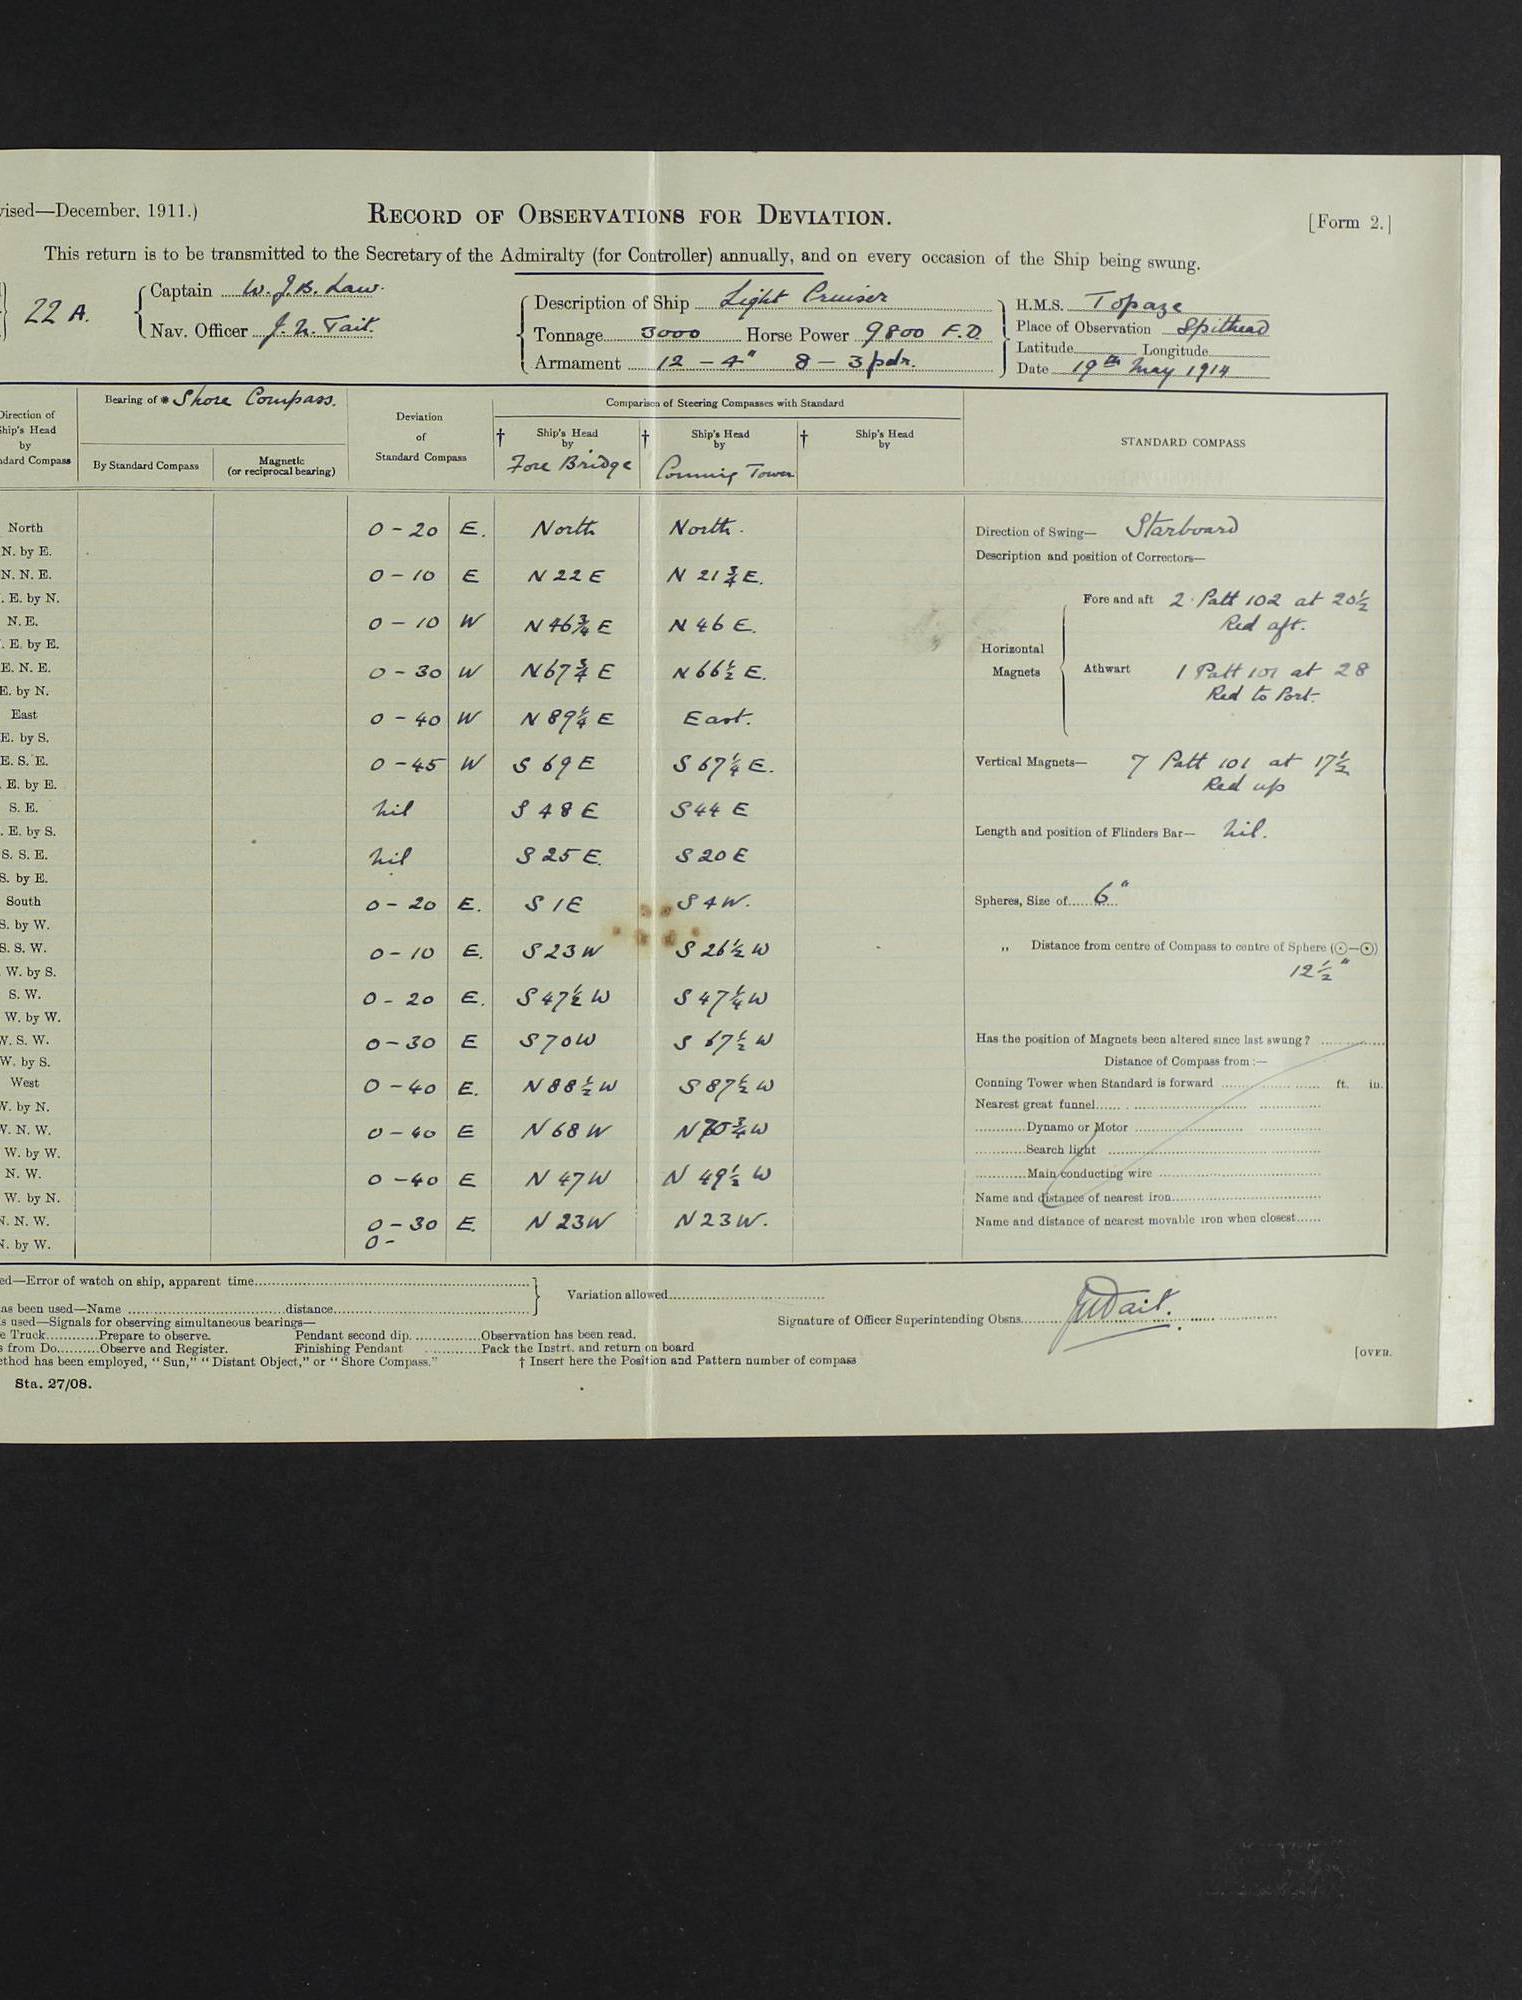 vised—December, 1911.)
RECORD OF OBSERVATIONS FOR DEVIATION.
[Form 2.]
This return is to be transmitted to the Secretary of the Admiralty (for Controller) annually, and on every occasion of the Ship being swung.
22 A.
Captain W. J. B. Law.
Nav. Officer J. N. Tait.
Description of Ship Light Cruiser
Tonnage 3000 Horse Power 9800 F.D.
Armament 12 – 4" 8 – 3 pdr.
H.M.S. Topaze
Place of Observation Spithead
Latitude Longitude
Date 19th May 1914
Direction of
Ship's Head
by
dard Compass
Bearing of * Shore Compass.
By Standard Compass
Magnetic
(or reciprocal bearing)
Deviation
of
Standard Compass
Comparison of Steering Compasses with Standard
† Ship's Head
by
Fore Bridge
† Ship's Head
by
Conning Tower
† Ship's Head
by
STANDARD COMPASS
North 0 – 20 E. North North.
N. by E.
N. N. E. 0 – 10 E N 22 E N 21 3/4 E.
. E. by N.
N. E. 0 – 10 W N 46 3/4 E N 46 E.
. E. by E.
E. N. E. 0 – 30 W N 67 3/4 E N 66 1/2 E.
E. by N.
East 0 – 40 W N 89 1/4 E East.
E. by S.
E. S. E. 0 – 45 W S 69 E S 67 1/4 E.
. E. by E.
S. E. Nil S 48 E S 44 E
. E. by S.
S. S. E. Nil S 25 E. S 20 E
S. by E.
South 0 – 20 E. S 1 E S 4 W.
S. by W.
S. S. W. 0 – 10 E. S 23 W S 26 1/2 W
W. by S.
S. W. 0 – 20 E. S 47 1/2 W S 47 1/4 W
W. by W.
W. S. W. 0 – 30 E S 70 W S 67 1/2 W
W. by S.
West 0 – 40 E. N 88 1/2 W S 87 1/2 W
W. by N.
W. N. W. 0 – 40 E N 68 W N 70 3/4 W
W. by W.
N. W. 0 – 40 E N 47 W N 49 1/2 W
W. by N.
N. N. W. 0 – 30 E. N 23 W N 23 W.
N. by W. 0 –
Direction of Swing— Starboard
Description and position of Correctors—
Horizontal
Magnets
Fore and aft 2 Patt 102 at 20 1/2
Red aft.
Athwart 1 Patt 101 at 28
Red to Port.
Vertical Magnets— 7 Patt 101 at 17 1/2
Red up
Length and position of Flinders Bar— Nil.
Spheres, Size of 6"
„ Distance from centre of Compass to centre of Sphere (⊙—⊙)
12 1/2"
Has the position of Magnets been altered since last swung?
Distance of Compass from :—
Conning Tower when Standard is forward ft. in.
Nearest great funnel
Dynamo or Motor
Search light
Main conducting wire
Name and distance of nearest iron
Name and distance of nearest movable iron when closest
ed—Error of watch on ship, apparent time
as been used—Name distance
Variation allowed
s used—Signals for observing simultaneous bearings—
e Truck Prepare to observe. Pendant second dip. Observation has been read.
s from Do. Observe and Register. Finishing Pendant Pack the Instrt. and return on board
ethod has been employed, "Sun," "Distant Object," or "Shore Compass." † Insert here the Position and Pattern number of compass
Signature of Officer Superintending Obsns. JNTait.
[OVER.
Sta. 27/08.